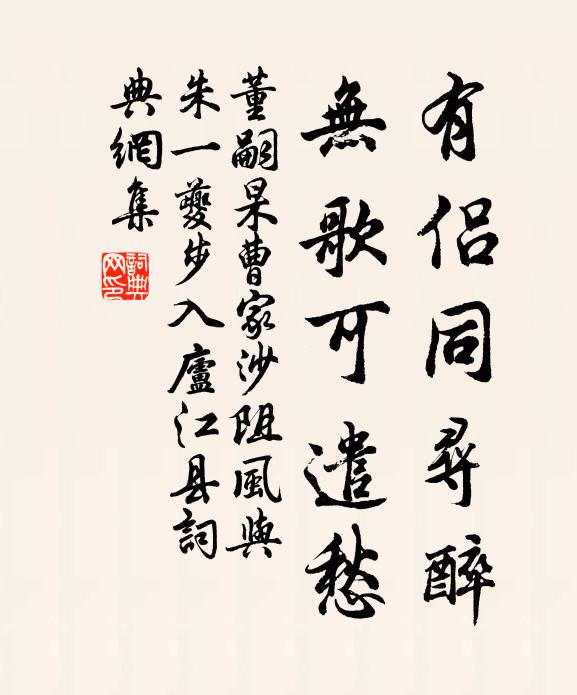 有侣同尋醉
無歌可遣愁
董嗣杲曹家沙阻風與
朱一夔步入廬江县詞
典網集
詞典网印